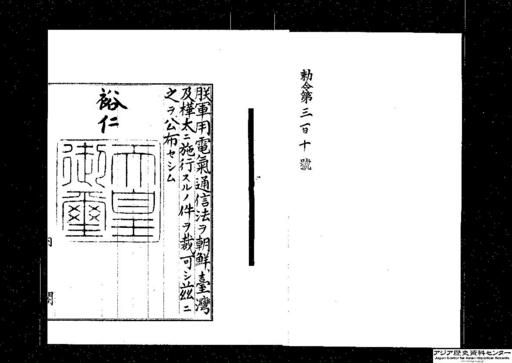 勅令第三百十號
朕軍用電氣通信法ヲ朝鮮、臺灣
及樺太ニ施行スルノ件ヲ裁可シ茲ニ
之ヲ公布セシム
裕仁
天皇
御璽
アジア歴史資料センター
Japan Center for Asian Historical Records